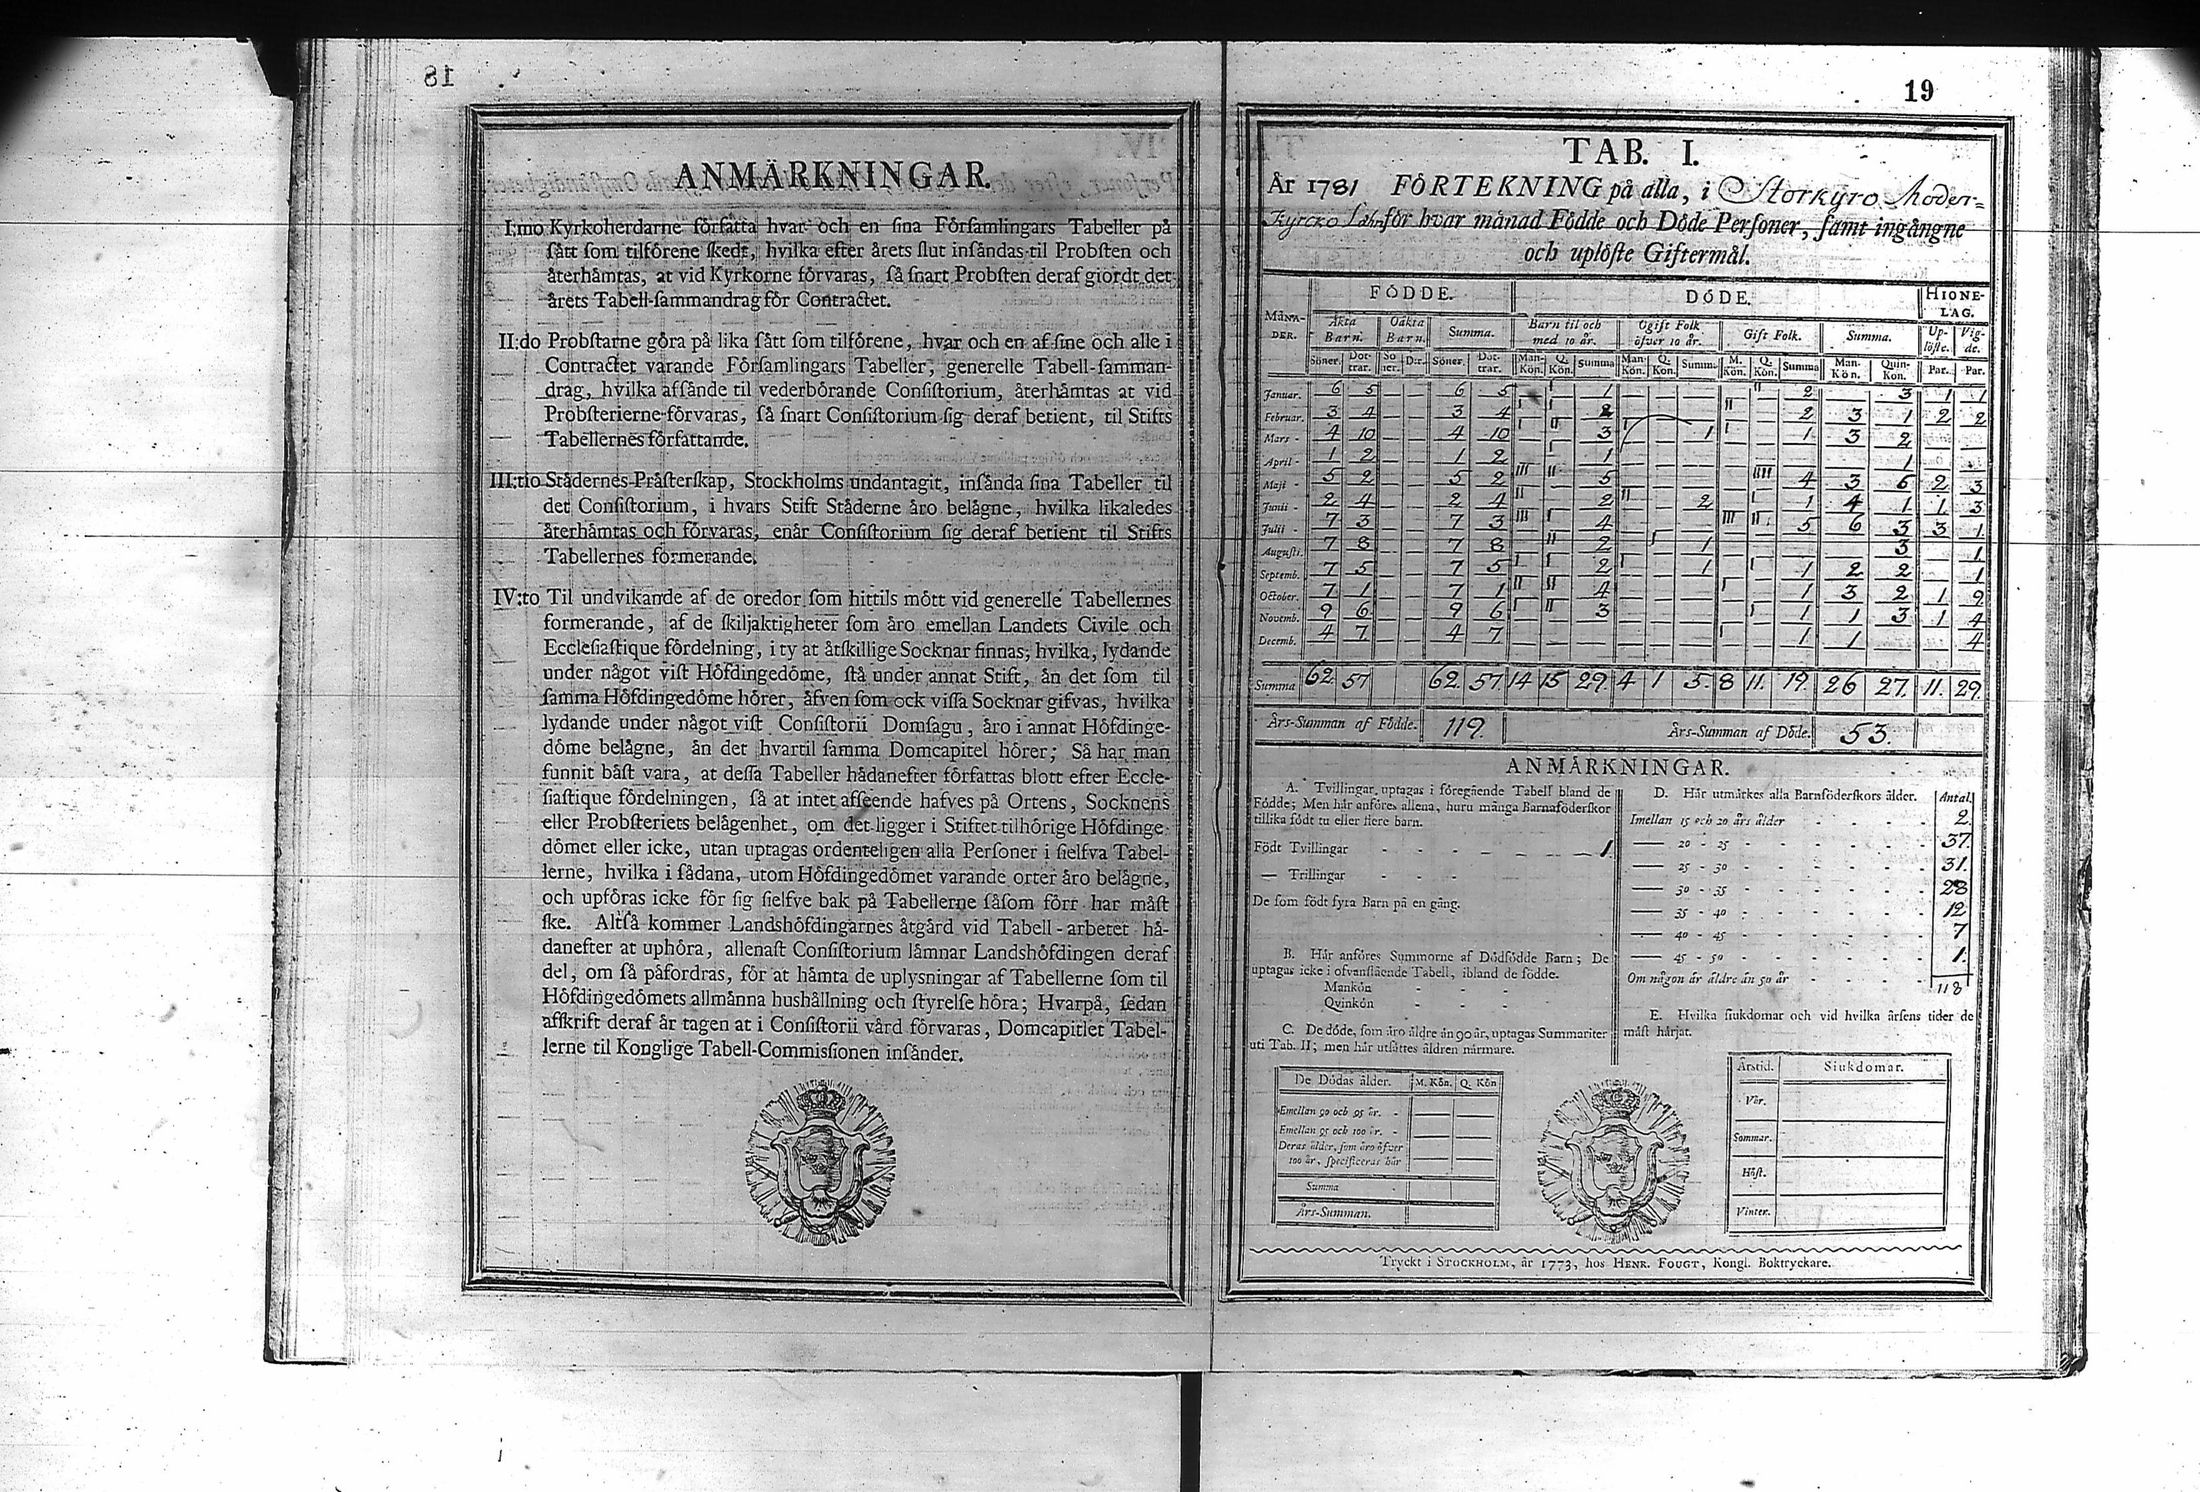 18
ANMÄRKNINGAR.
I:mo Kyrkoherdarne författa hvar och en sina Församlingars Tabeller på
sått som tilförene skedt, hvilka efter årets slut insåndas til Probsten och
återhåmtas, at vid Kyrkorne förvaras, så snart Probsten deraf giordt det
årets Tabell-sammandrag för Contractet.
II:do Probstarne göra på lika sått som tilförene, hvar och en af sine och alle i
Contractet varande Församlingars Tabeller, generelle Tabell-samman-
drag, hvilka afsånde til vederbörande Consistorium, återhåmtas at vid
Probsterierne förvaras, så snart Consistorium sig deraf betient, til Stifts
Tabellernes författande.
III:tio Stådernes Pråsterskap, Stockholms undantagit, insånda sina Tabeller til
det Consistorium, i hvars Stift Ståderne åro belågne, hvilka likaledes
återhåmtas och förvaras, enår Consistorium sig deraf betient til Stifts
Tabellernes formerande.
IV:to Til undvikande af de oredor som hittils mött vid generelle Tabellernes
formerande, af de skiljaktigheter som åro emellan Landets Civile och
Ecclesiastique fördelning, i ty at åtskillige Socknar finnas, hvilka, lydande
under något vist Höfdingedöme, stå under annat Stift, ån det som til
samma Höfdingedöme hörer, åfven som ock vissa Socknar gifvas, hvilka
lydande under något vist Consistorii Domsagu, åro i annat Höfdinge-
döme belågne, ån det hvartil samma Domcapitel hörer; Så har man
funnit båst vara, at dessa Tabeller hådanefter författas blott efter Eccle-
siastique fördelningen, så at intet afseende hafves på Ortens, Socknens
eller Probsteriets belågenhet, om det ligger i Stiftet tilhörige Höfdinge-
dömet eller icke, utan uptagas ordenteligen alla Personer i sielfva Tabel-
lerne, hvilka i sådana, utom Höfdingedömet varande orter åro belågne,
och upföras icke för sig sielfve bak på Tabellerne såsom förr har måst
ske. Altså kommer Landshöfdingarnes åtgård vid Tabell-arbetet hå-
danefter at uphöra, allenast Consistorium låmnar Landshöfdingen deraf
del, om så påfordras, för at håmta de uplysningar af Tabellerne som til
Höfdingedömets allmånna hushållning och styrelse höra; Hvarpå, sedan
afskrift deraf år tagen at i Consistorii vård förvaras, Domcapitlet Tabel-
lerne til Konglige Tabell-Commissionen insånder.
19
TAB. I.
År 1781 FÖRTEKNING på alla, i Storkyro Moder=
Kyrcko för hvar månad Födde och Döde Personer, samt ingångne
och uplöste Giftermål.
MÅNA-
DER.
FÖDDE. DÖDE. HIONE-
LAG.
Åkta
Barn. Oåkta
Barn. Summa. Barn til och
med 10 år. Ogift Folk
öfver 10 år. Gift Folk. Summa. Up-
löste. Vig-
de.
Söner. Döt-
trar. Sö
ner. Dtr. Söner. Döt-
trar. Man-
Kön. Q.
Kön. Summa Man-
Kön. Q.
Kön. Summa M.
Kön. Q.
Kön. Summa Man-
Kön. Quin-
Kön. Par. Par.
Januar. 6 5 — — 6 5 — I 1 — — — — II 2 — 3 1 1
Februar. 3 4 — — 3 4 I I 2 — — — II — 2 3 1 2 2
Mars - 4 10 — — 4 10 I II 3 I — 1 I — 1 3 2 — —
April - 1 2 — — 1 2 — I 1 — — — — — — — 1 — —
Maji - 5 2 — — 5 2 III II 5 — — — — IIII 4 3 6 2 3
Junii - 2 4 — — 2 4 II — 2 II — 2 — I 1 4 1 1 3
Julii - 7 3 — — 7 3 III I 4 — — — III II 5 6 3 3 1
Augusti. 7 8 — — 7 8 — II 2 — I 1 — — — — 3 — 1
Septemb. 7 5 — — 7 5 I I 2 I — 1 — I 1 2 2 — 1
October. 7 1 — — 7 1 II II 4 — — — I — 1 3 2 1 9
Novemb. 9 6 — — 9 6 I II 3 — — — — I 1 1 3 1 4
Decemb. 4 7 — — 4 7 — — — — — — I — 1 1 — — 4
Summa 62. 57 62. 57. 14 15 29. 4 1 5. 8 11. 19. 26 27. 11. 29.
Års-Summan af Födde. 119. Års-Summan af Döde. 53.
ANMÄRKNINGAR.
A. Tvillingar uptagas i föregående Tabell bland de
Födde; Men hår anföres allena, huru många Barnaföderskor
tillika födt tu eller flere barn.
Födt Tvillingar - - - - - 1.
— Trillingar - - -
De som födt fyra Barn på en gång.
B. Hår anföres Summorne af Dödfödde Barn; De
uptagas icke i ofvanstående Tabell, ibland de födde.
Mankön - - -
Qvinkön - - -
C. De döde, som åro åldre ån 90 år, uptagas Summariter
uti Tab. II; men hår utsåttes åldren nårmare.
De Dödas ålder. M. Kön. Q. Kön
Emellan 90 och 95 år. - — —
Emellan 95 och 100 år. - — —
Deras ålder, som åro öfver
100 år, specificeras hår — —
Summa -
Års-Summan.
D. Hår utmårkes alla Barnföderskors ålder. Antal.
Imellan 15 och 20 års ålder - - - 2.
— 20 - 25 - - - 37.
— 25 - 30 - - - 31.
— 30 - 35 - - - 28
— 35 - 40 - - - 12
— 40 - 45 - - - 7
— 45 - 50 - - - 1.
Om någon år åldre ån 50 år - - -
118
E. Hvilka siukdomar och vid hvilka årsens tider de
måst hårjat.
Årstid. Siukdomar.
Vår.
Sommar.
Höst.
Vinter.
Tryckt i STOCKHOLM, år 1773, hos HENR. FOUGT, Kongl. Boktryckare.